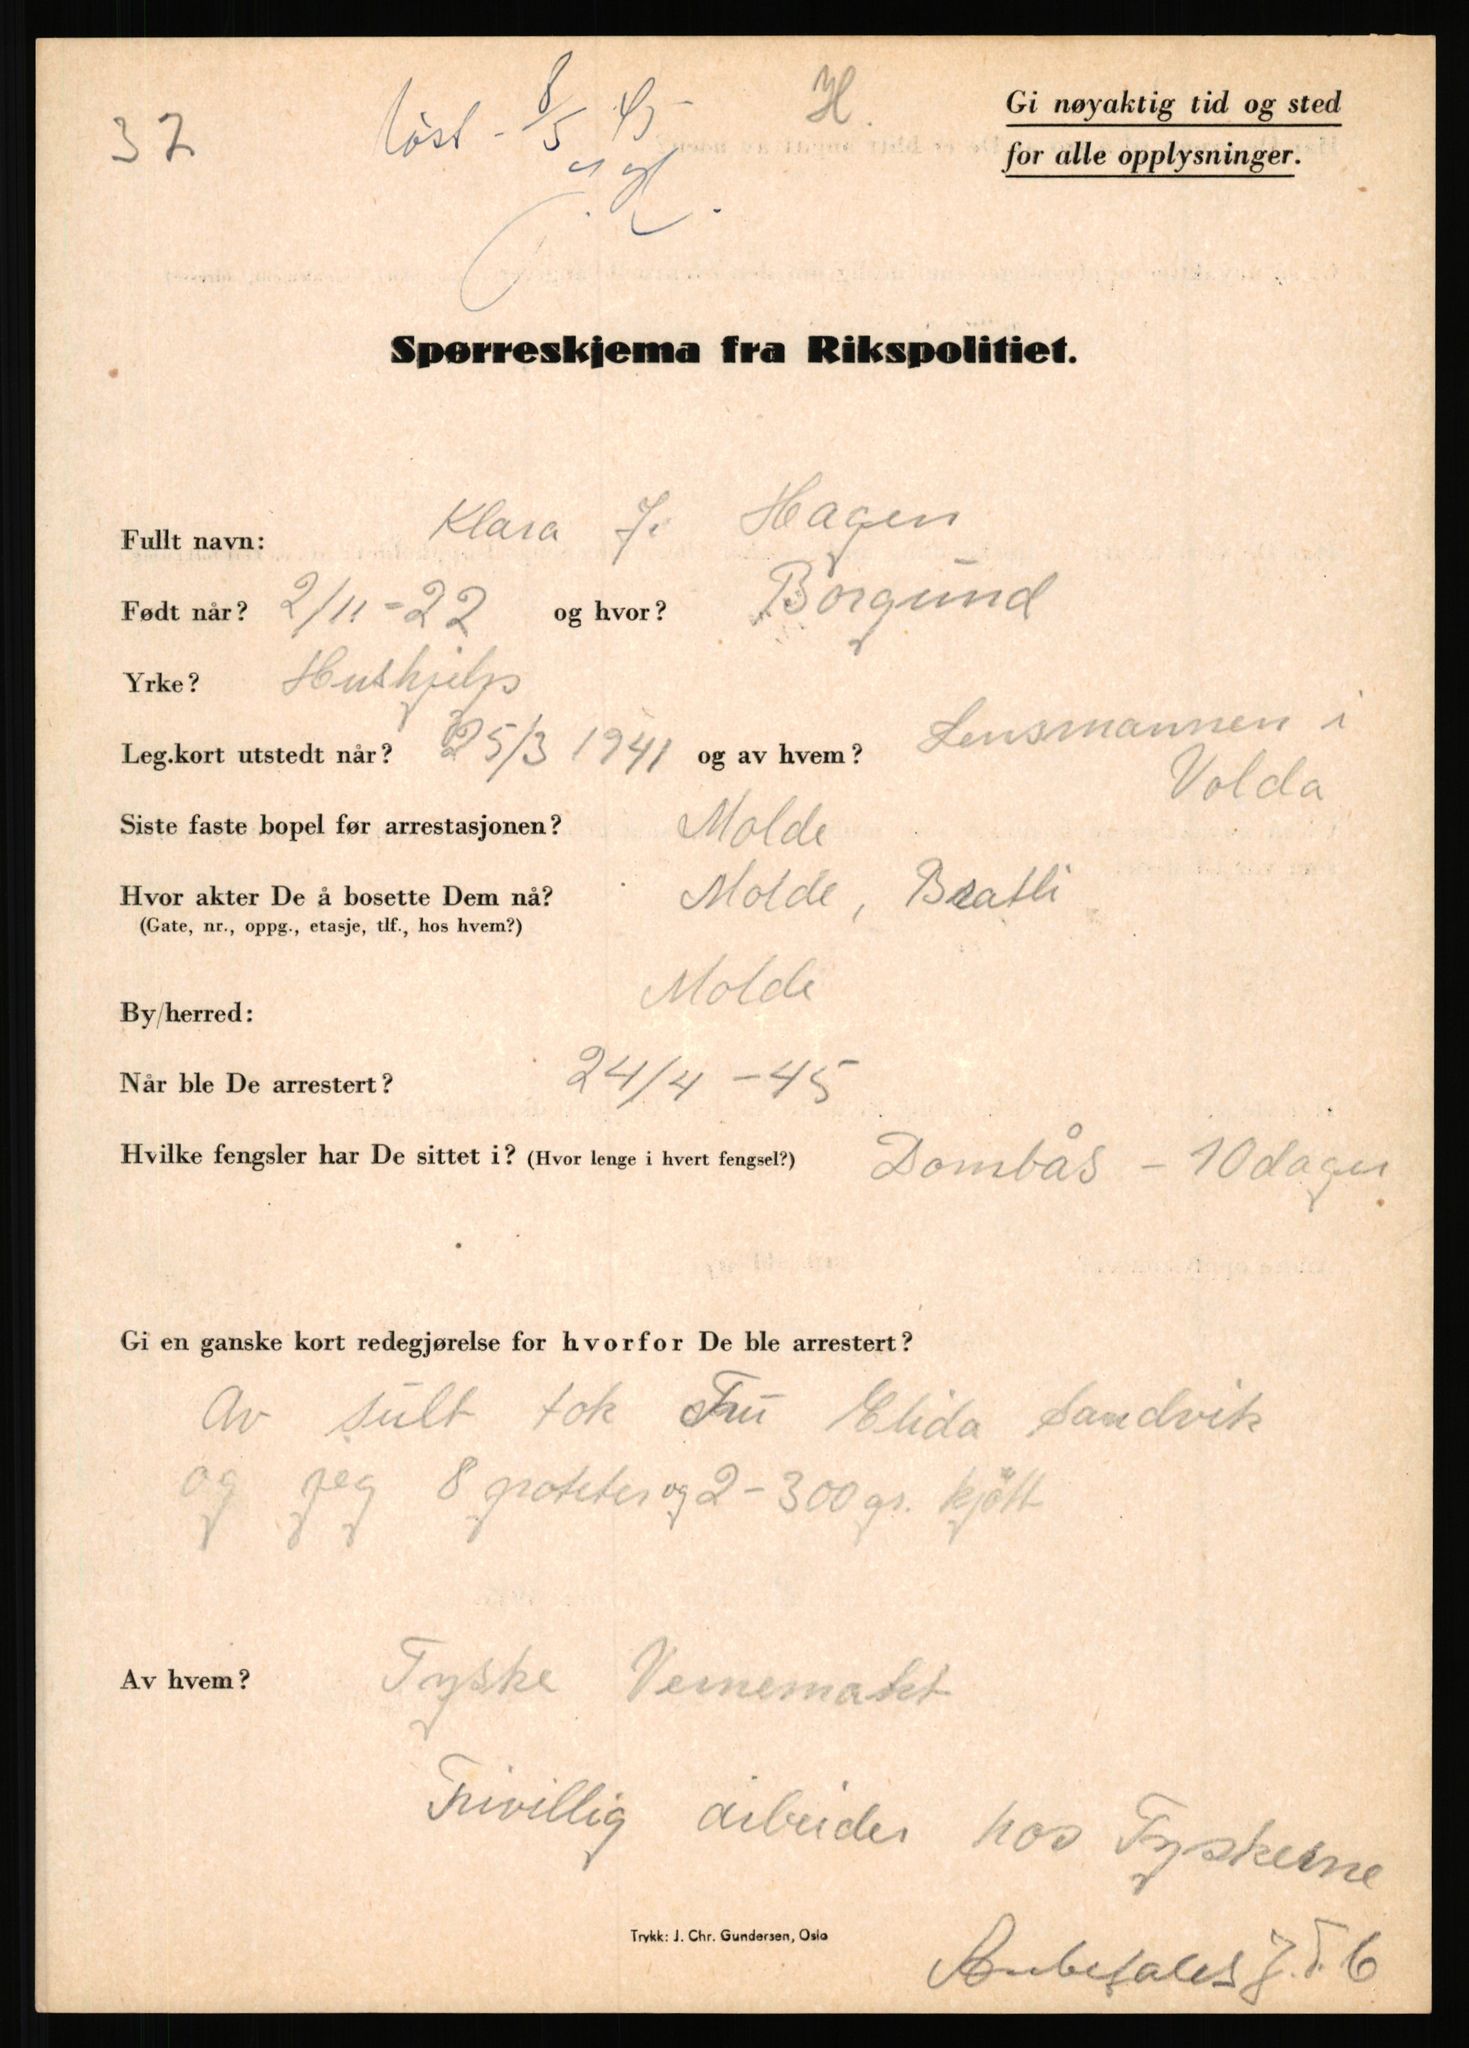 37
löst - 8/5 45
H.
Gi nøyaktig tid og sted
for alle opplysninger.
Spørreskjema fra Rikspolitiet.
Fullt navn: Klara J. Hagen
Født når? 2/11-22 og hvor? Borgund
Yrke? Hushjelp
Leg.kort utstedt når? 25/3 1941 og av hvem? Lensmannen i
Volda
Siste faste bopel før arrestasjonen? Molde
Hvor akter De å bosette Dem nå? Molde, Bratli
(Gate, nr., oppg., etasje, tlf., hos hvem?)
By/herred: Molde
Når ble De arrestert? 24/4 -45
Hvilke fengsler har De sittet i? (Hvor lenge i hvert fengsel?) Dombås - 10 dager
Gi en ganske kort redegjørelse for hvorfor De ble arrestert?
Av sult tok Fru Elida Sandvik
og jeg 8 poteter og 2-300 gr. kjött
Av hvem? Tyske Vernemakt
Frivillig arbeider hos Tyskerne
Trykk: J. Chr. Gundersen, Oslo
Anbefales